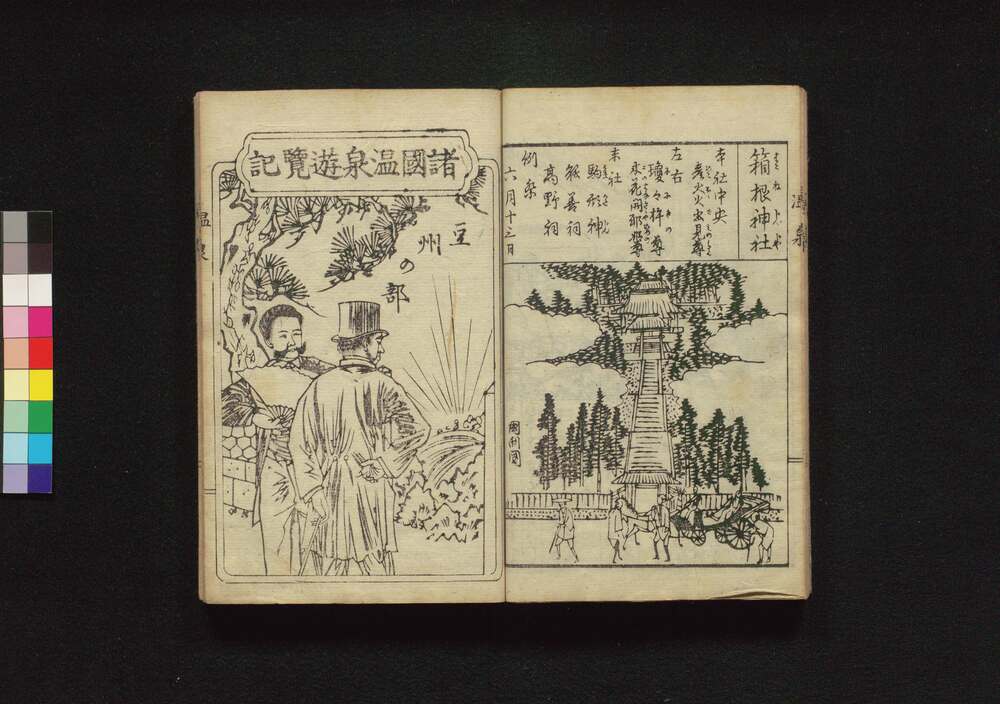 箱根神社
本社中央
彦火火出見尊
左右
瓊々杵尊
木花開耶姫尊
末社
駒形神
高野祠
例祭
六月十三日
温泉
諸國温泉遊覽記
豆州の部
温泉